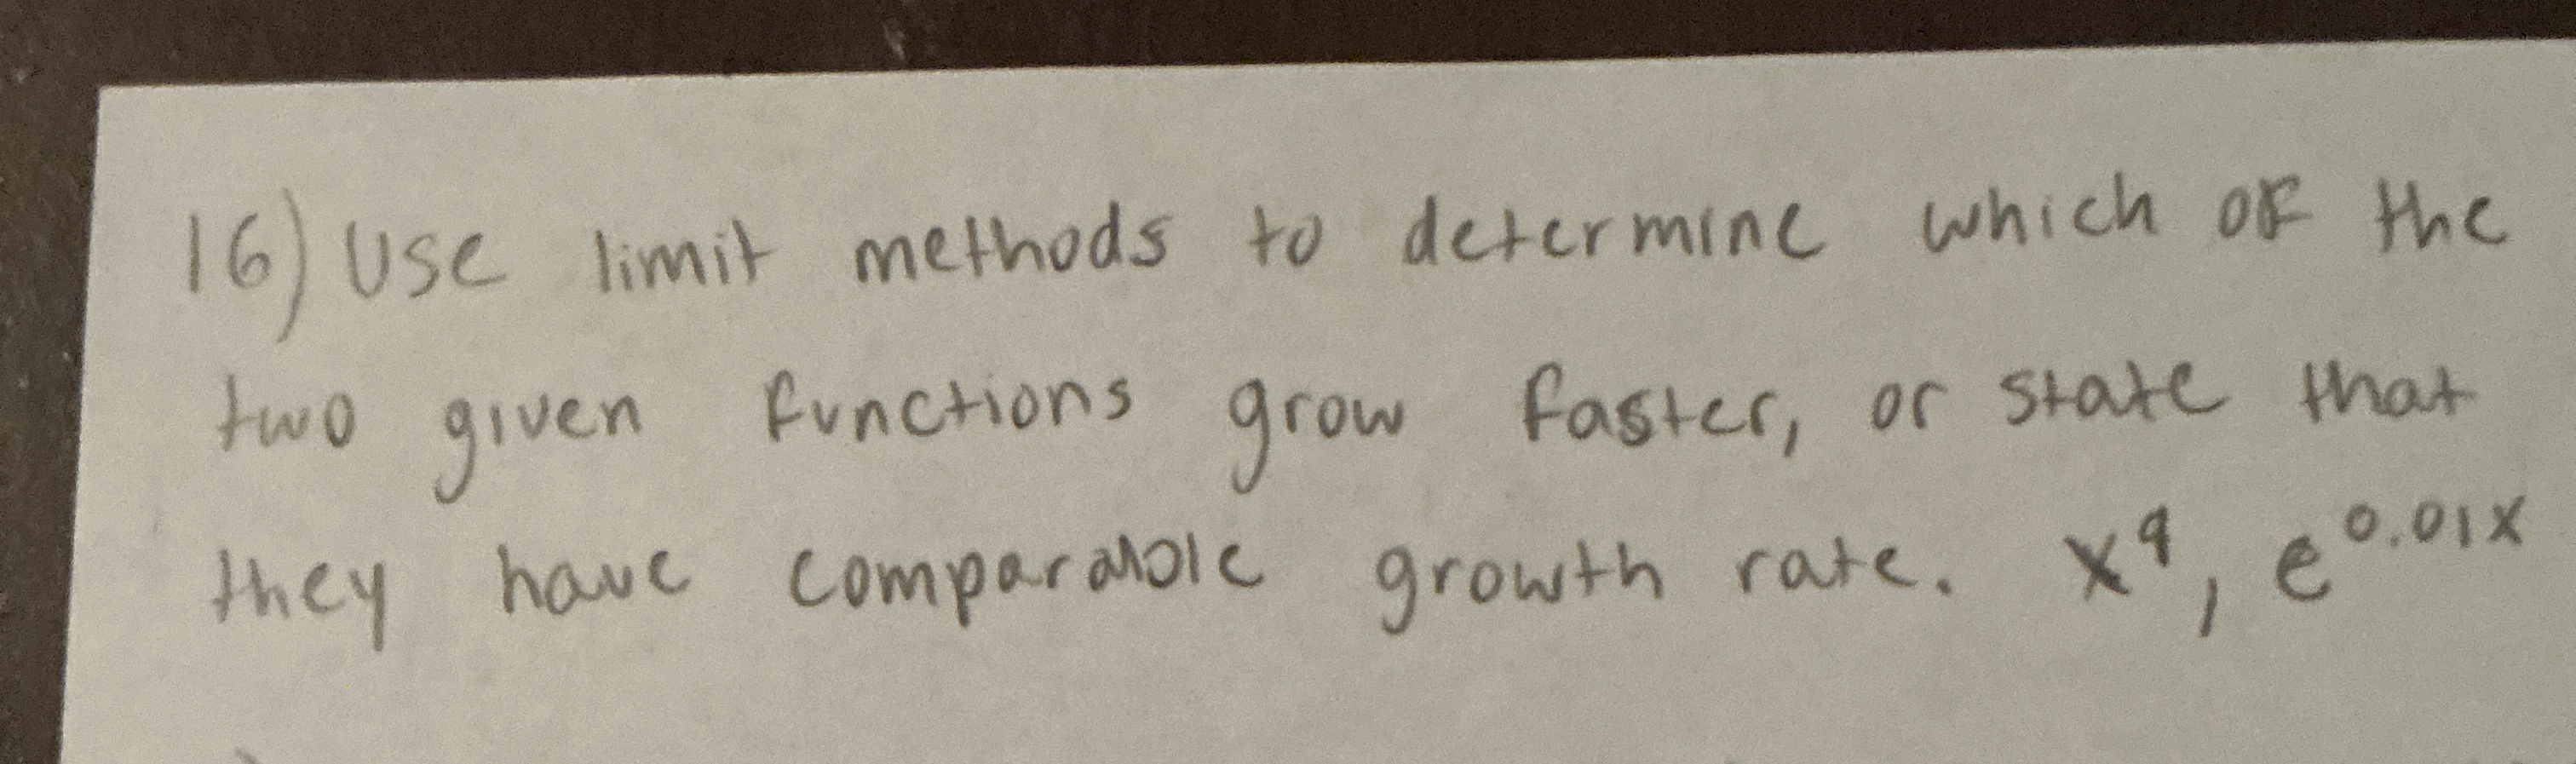 16) Use limit methods to determine which of the
two given functions grow faster, or state that
they have comparable growth rate. x⁹, e^0.01x